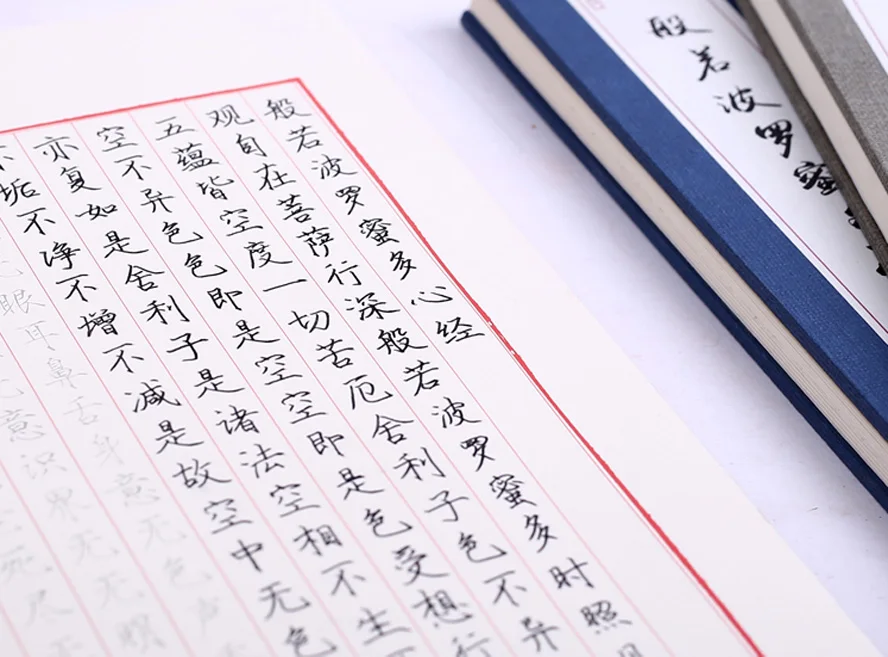 般若波罗蜜多心经
观自在菩萨行深般若波罗蜜多时照
五蕴皆空度一切苦厄舍利子色不异
空不异色色即是空空即是色受想行
亦复如是舍利子是诸法空相不生
不垢不净不增不减是故空中无色
眼耳鼻舌身意无色声
意识界无无明
死尽
般若波罗蜜